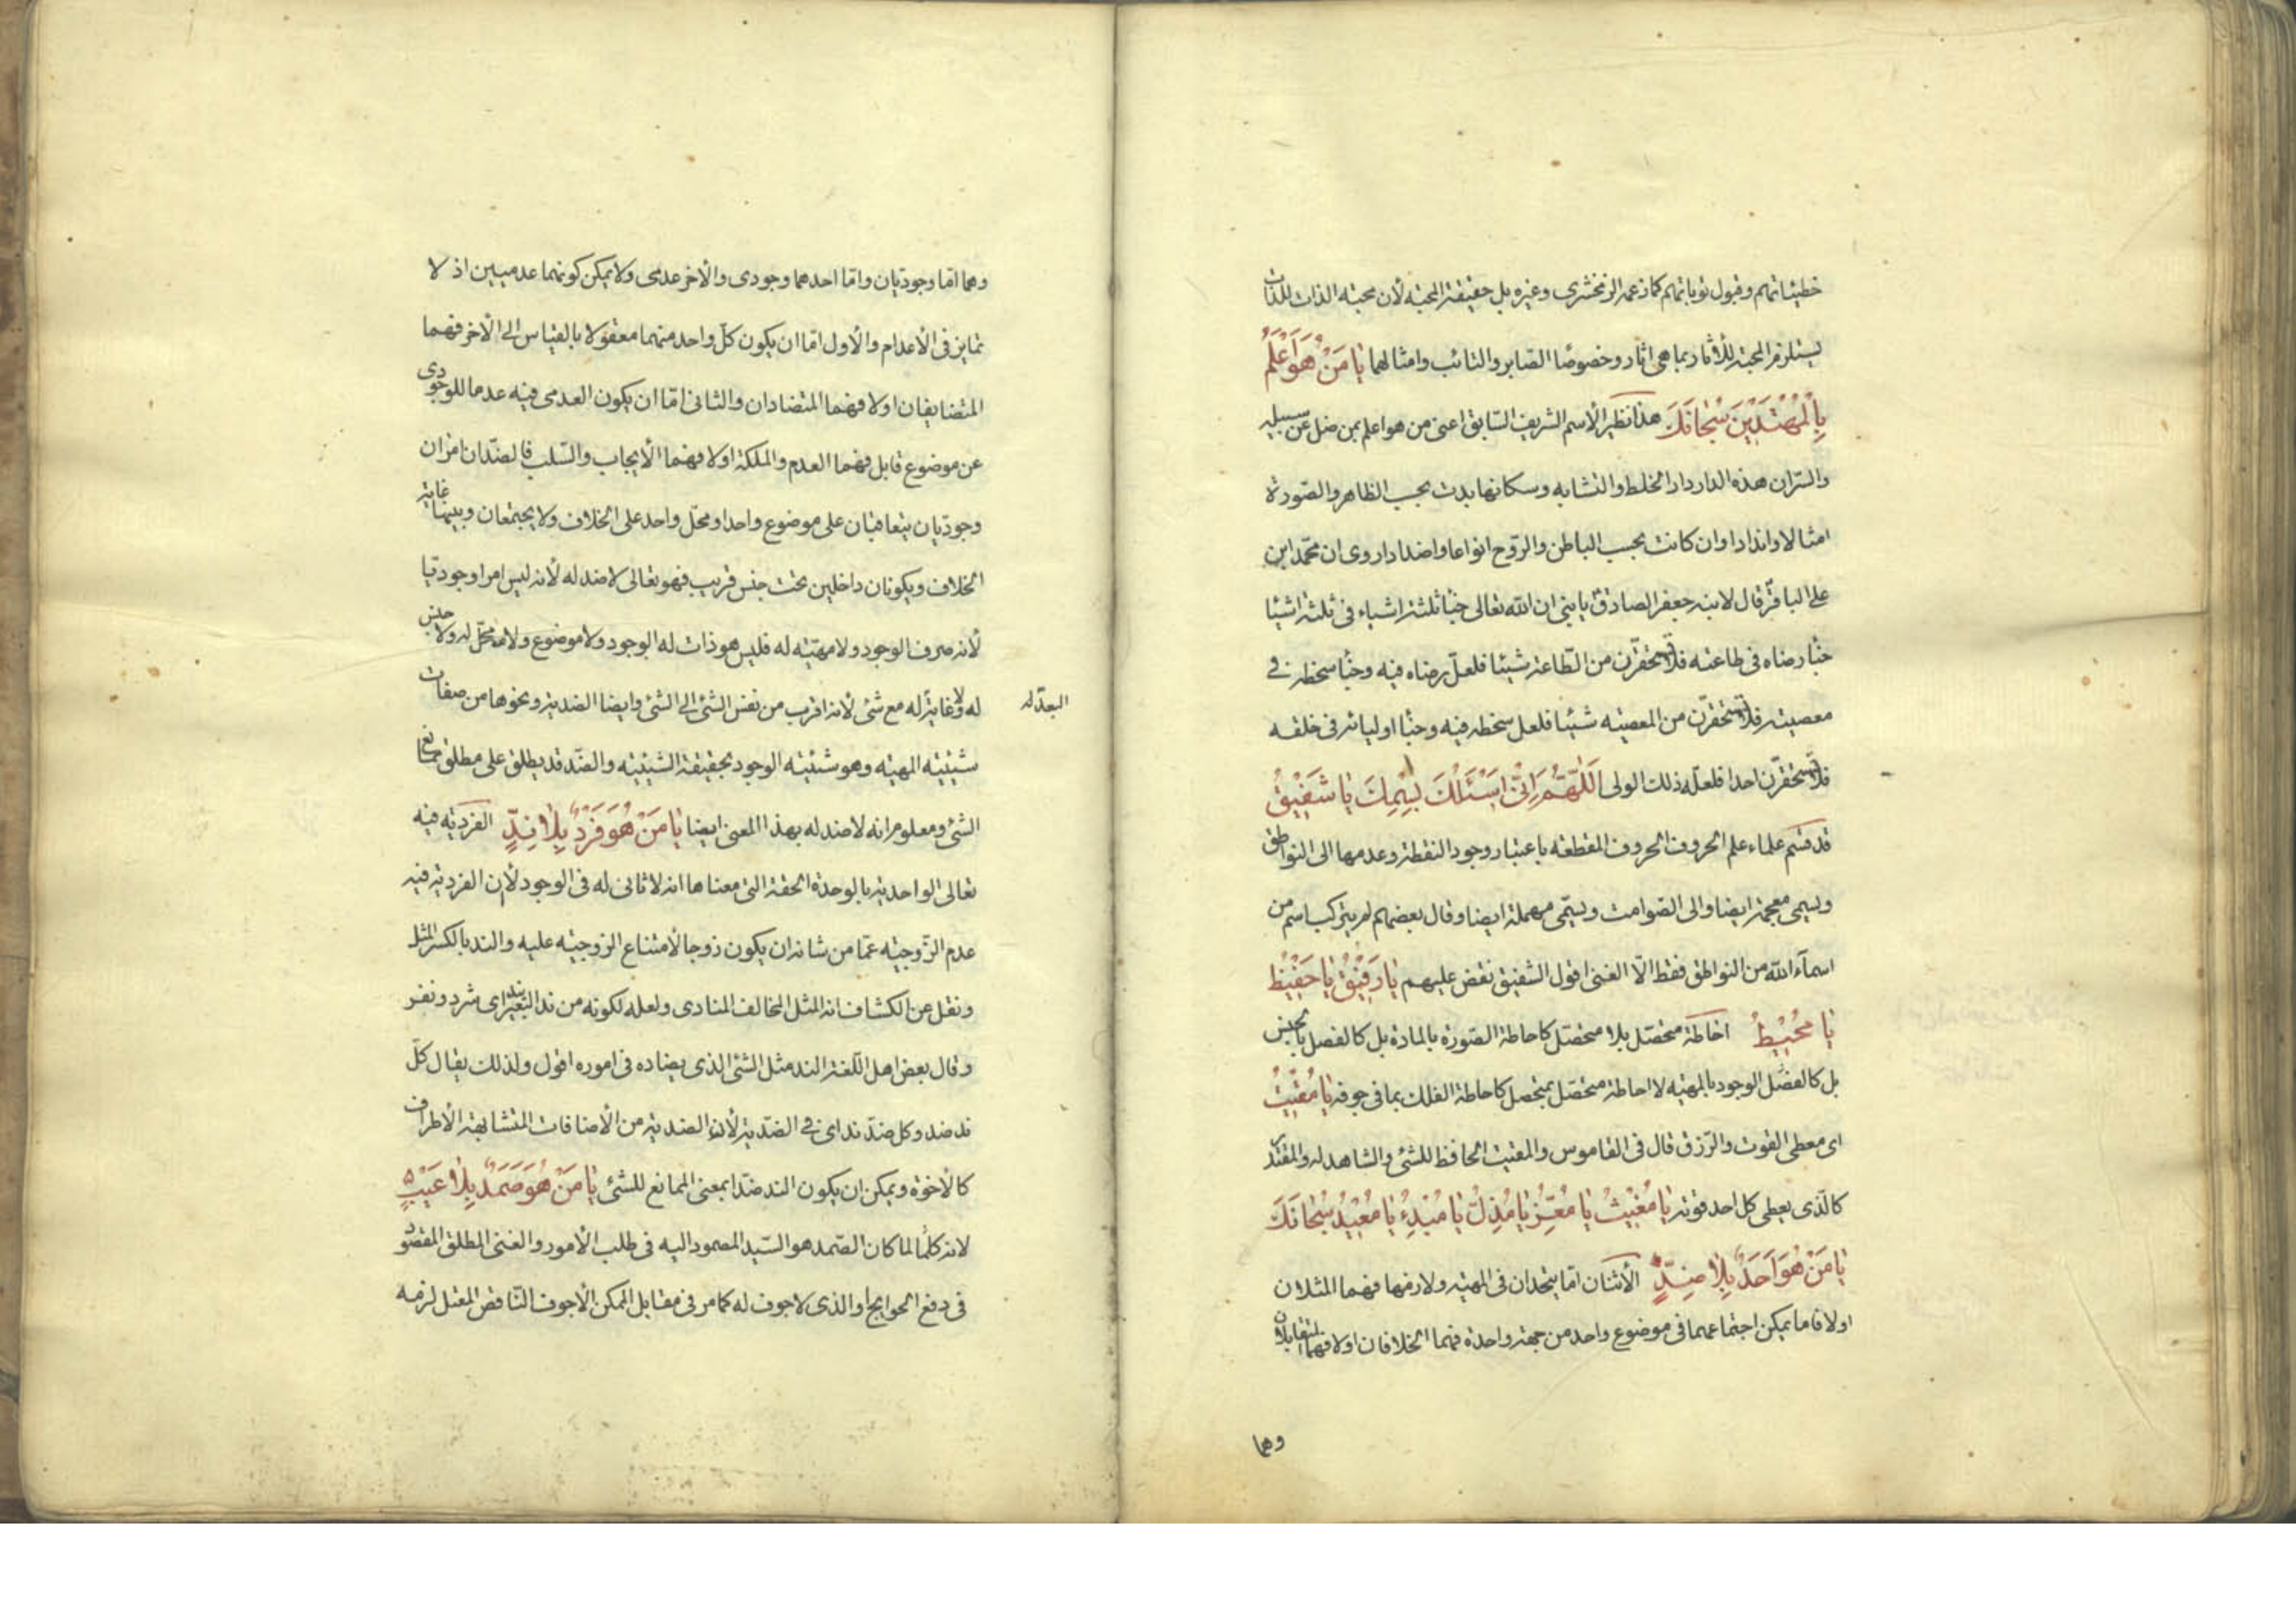 خطيئاتهم وقبول توباتهم كما زعمه الزمخشرى وغيره بل حقيقة المحبة لأن محبة الذات للذات
يستلزم المحبة للأثار بما هى اثار وخصوصًا الصابر والتائب وامثالهما يَا مَنْ هُوَ اَعْلَمُ
بِالْمُهْتَدِيْنَ سُبْحَانَكَ هذا نظير الاسم الشريف السّابق اعنى من هو اعلم بمن ضل عن سبيله
والسّر ان هذه الدار دار الخلط والتشابه وسكانها بدت بحسب الظاهر والصّورة
امثالا واندادا وان كانت بحسب الباطن والرّوح انواعا واضدادا روى ان محمّد ابن
على الباقر قال لابنه جعفر الصادق يا بنى ان الله تعالى خبّأ ثلثة اشياء فى ثلثة اشيا
خبّأ رضاه فى طاعته فلا تحقرّن من الطّاعة شيئا فلعلّ رضاه فيه وخبّأ سخطه فى
معصيته فلا تحقرّن من المعصية شيئا فلعل سخطه فيه وخبّأ اوليائه فى خلقه
فلا تحقرّن احدا فلعلّه ذلك الولى اَللّٰهُمَّ اِنِّىْ اَسْئَلُكَ بِسْمِكَ يَا شَفِيْقُ
قد قسّم علماء علم الحروف الحروف المقطعة باعتبار وجود النقطة وعدمها الى النواطق
ويسمى معجمة ايضا والى الصّوامت ويسمّى مهملة ايضا وقال بعضهم لم يتركب اسم من
اسمآء الله من النواطق فقط الّا الغنى اقول الشفيق نقض عليهم يَا رَفِيْقُ يَا حَفِيْظُ
يَا مُحِيْطُ احاطة متحصّل بلا متحصّل كاحاطة الصّورة بالمادة بل كالفصل بالجنس
بل كالفصل الوجود بالمهيّه لا احاطة متحصّل بمتحصل كاحاطة الفلك بما فى جوفه يَا مُقِيْتُ
اى معطى القوت والرّزق قال فى القاموس والمقيت الحافظ للشئ والشاهد له والمقتدر
كالّذى يعطى كل احد قوته يَا مُغِيْثُ يَا مُعِزُّ يَا مُذِلُّ يَا مُبْدِئُ يَا مُعِيْدُ سُبْحَانَكَ
يَا مَنْ هُوَ اَحَدٌ بِلَا ضِدٍّ الأثنان امّا يتحدان فى المهيّه ولازمها فهما المثلان
اولا فاما يمكن اجتماعهما فى موضوع واحد من جهة واحدة فهما الخلافان اولا فهما المتقابلان
وهما
وهما امّا وجوديّان وامّا احدهما وجودى والأخر عدمى ولا يمكن كونهما عدميين اذ لا
تمايز فى الأعدام والأول امّا ان يكون كلّ واحد منهما معقولا بالقياس الى الأخر فهما
المتضايفان اولا فهما المتضادان والثانى امّا ان يكون العدمى فيه عدما للوجودى
عن موضوع قابل فهما العدم والملكة اولا فهما الأيجاب والسّلب فالضدّان امران
وجوديّان يتعاقبان على موضوع واحد او محلّ واحد على الخلاف ولا يجتمعان وبينهما غاية
الخلاف ويكونان داخلين تحت جنس قريب فهو تعالى لا ضد له لأنه ليس امرا وجوديّا
لأنه صرف الوجود ولا مهيّة له فليس هو ذات له الوجود ولا موضوع ولا محلّ له ولا جنس
له ولا غاية له مع شئ لأنه اقرب من نفس الشئ الى الشئ وايضا الضدية ونحوها من صفات
البعد له
شيئية المهية وهو شيئية الوجود بحقيقة الشيئية والضّد قد يطلق على مطلق ممانع
الشئ ومعلوم انه لا ضد له بهذا المعنى ايضا يَا مَنْ هُوَ فَرْدٌ بِلَا نِدٍّ الفرديّه فيه
تعالى الواحدية بالوحدة الحقة التى معناها انه لا ثانى له فى الوجود لأن الفردية فيه
عدم الزّوجيّه عمّا من شانه ان يكون زوجا لأمتناع الزوجيّه عليه والند بالكسر المثل
ونقل عن الكشاف انه المثل المخالف المنادى ولعله لكونه من ند البعير اى شرد ونفر
وقال بعض اهل اللّغة الند مثل الشئ الذى يضاده فى اموره اقول ولذلك يقال كلّ
ند ضد وكل ضدّ ند اى فى الضدّية لأن الضدية من الأضافات المتشابهة الأطراف
كالأخوة ويمكن ان يكون الند ضدّا بمعنى الممانع للشئ يَا مَنْ هُوَ صَمَدٌ بِلَا عَيْبٍ
لانه كلّما لما كان الصّمد هو السّيد المصمود اليه فى طلب الأمور والغنى المطلق المقصود
فى دفع الحوايج او الذى لا جوف له كما مر فى مقابل الممكن الأجوف النّاقص المعتل لزمه